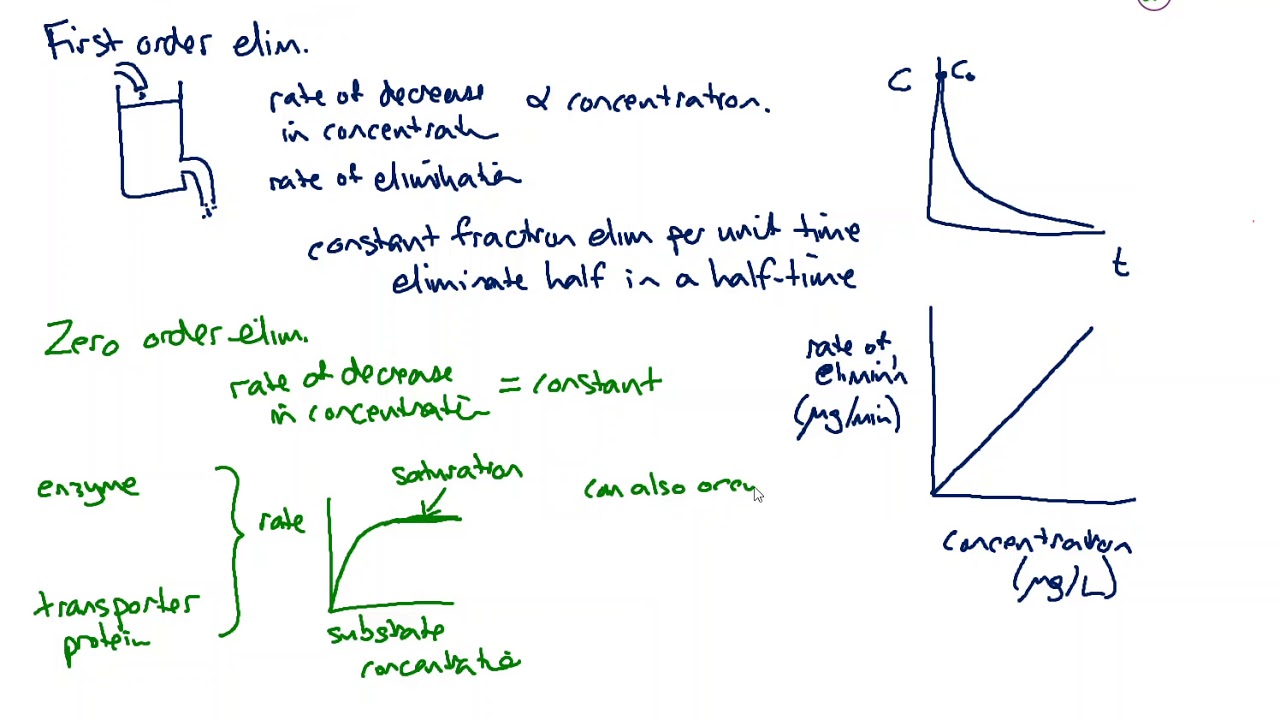 First order elim.
rate of decrease
in concentrat
∝ concentration.
rate of elimination
constant fraction elim per unit time
eliminate half in a half-time
C
C₀
t
rate of
elimin'n
(mg/min)
concentration
(mg/L)
Zero order elim.
rate of decrease
in concentration
= constant
enzyme
transporter
protein
rate
saturation
substrate
concentration
can also occu